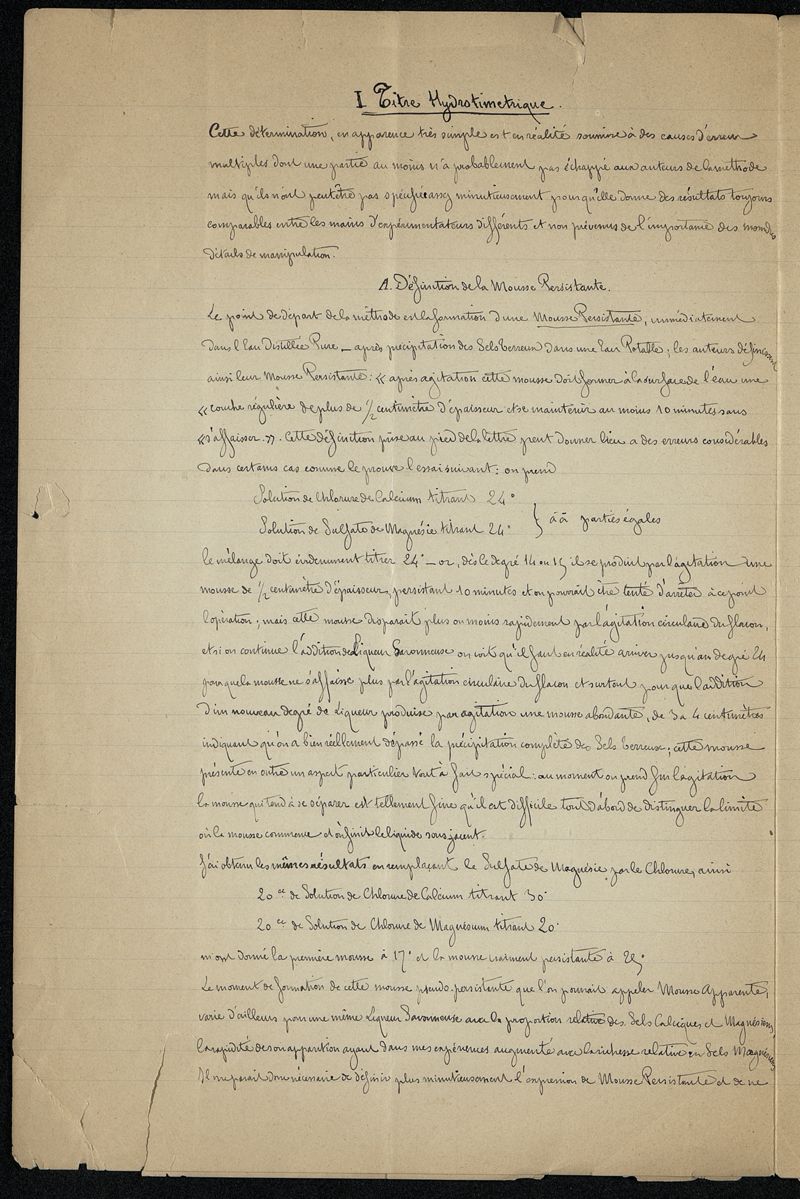 I Titre Hydrotimetrique.
Cette détermination, en apparence très simple est en réalité soumise à des causes d'erreur
multiples dont une partie au moins n'a probablement pas échappé aux auteurs de la méthode
mais qu'ils n'ont peutêtre pas spécifié assez minutieusement pour qu'elle donne des résultats toujours
comparables entre les mains d'expérimentateurs différents et non prévenus de l'importance des moindres
détails de manipulation.
A. Définition de la Mousse Persistante.
Le point de départ de la méthode est la formation d'une Mousse Persistante, immédiatement
dans l'Eau Distillée Pure – après précipitation des Sels terreux dans une Eau Potable; les auteurs définissent
ainsi leur Mousse Persistante: « après agitation cette mousse doit former à la surface de l'eau une
« couche régulière de plus de 1/2 centimètre d'épaisseur et se maintenir au moins 10 minutes sans
« s'affaisser. ». Cette définition prise au pied de la lettre peut donner lieu a des erreurs considérables
dans certains cas comme le prouve l'essai suivant: on prend
Solution de Chlorure de Calcium titrant 24°
Solution de Sulfate de Magnésie titrant 24° } āā parties égales
le mélange doit évidemment titrer 24° – or, dès le degré 14 ou 15 il se produit par l'agitation une
mousse de 1/2 centimètre d'épaisseur, persistant 10 minutes et on pourrait être tenté d'arrêter à ce point
l'opération; mais cette mousse disparait plus ou moins rapidement par l'agitation circulaire du flacon,
et si on continue l'addition de Liqueur Savonneuse on voit qu'il faut en réalité arriver jusqu'au degré 24
pour que la mousse ne s'affaisse plus par l'agitation circulaire du flacon et surtout pour que l'addition
d'un nouveau degré de Liqueur produise par agitation une mousse abondante, de 3 a 4 centimètres
indiquant qu'on a bien réellement dépassé la précipitation complète des Sels terreux; cette mousse
présente en outre un aspect particulier tout à fait spécial: au moment où prend fin l'agitation
la mousse qui tend à se séparer est tellement fine qu'il est difficile tout d'abord de distinguer la limite
où la mousse commence et où finit le liquide sous jacent.
J'ai obtenu les mêmes résultats en remplaçant le Sulfate de Magnésie par le Chlorure, ainsi
20cc de Solution de Chlorure de Calcium titrant 30°
20cc de Solution de Chlorure de Magnésium titrant 20°
m'ont donné la première mousse à 17° et la mousse vraiment persistante à 25°
Le moment de formation de cette mousse pseudo-persistante que l'on pourrait appeler Mousse Apparente,
varie d'ailleurs pour une même Liqueur Savonneuse avec la proportion relative des Sels Calciques et Magnésiens,
la rapidité de son apparition ayant dans mes expériences augmenté avec la richesse relative en Sels Magnésiens
Il me parait donc nécessaire de définir plus minutieusement l'expression de Mousse Persistante et de ne